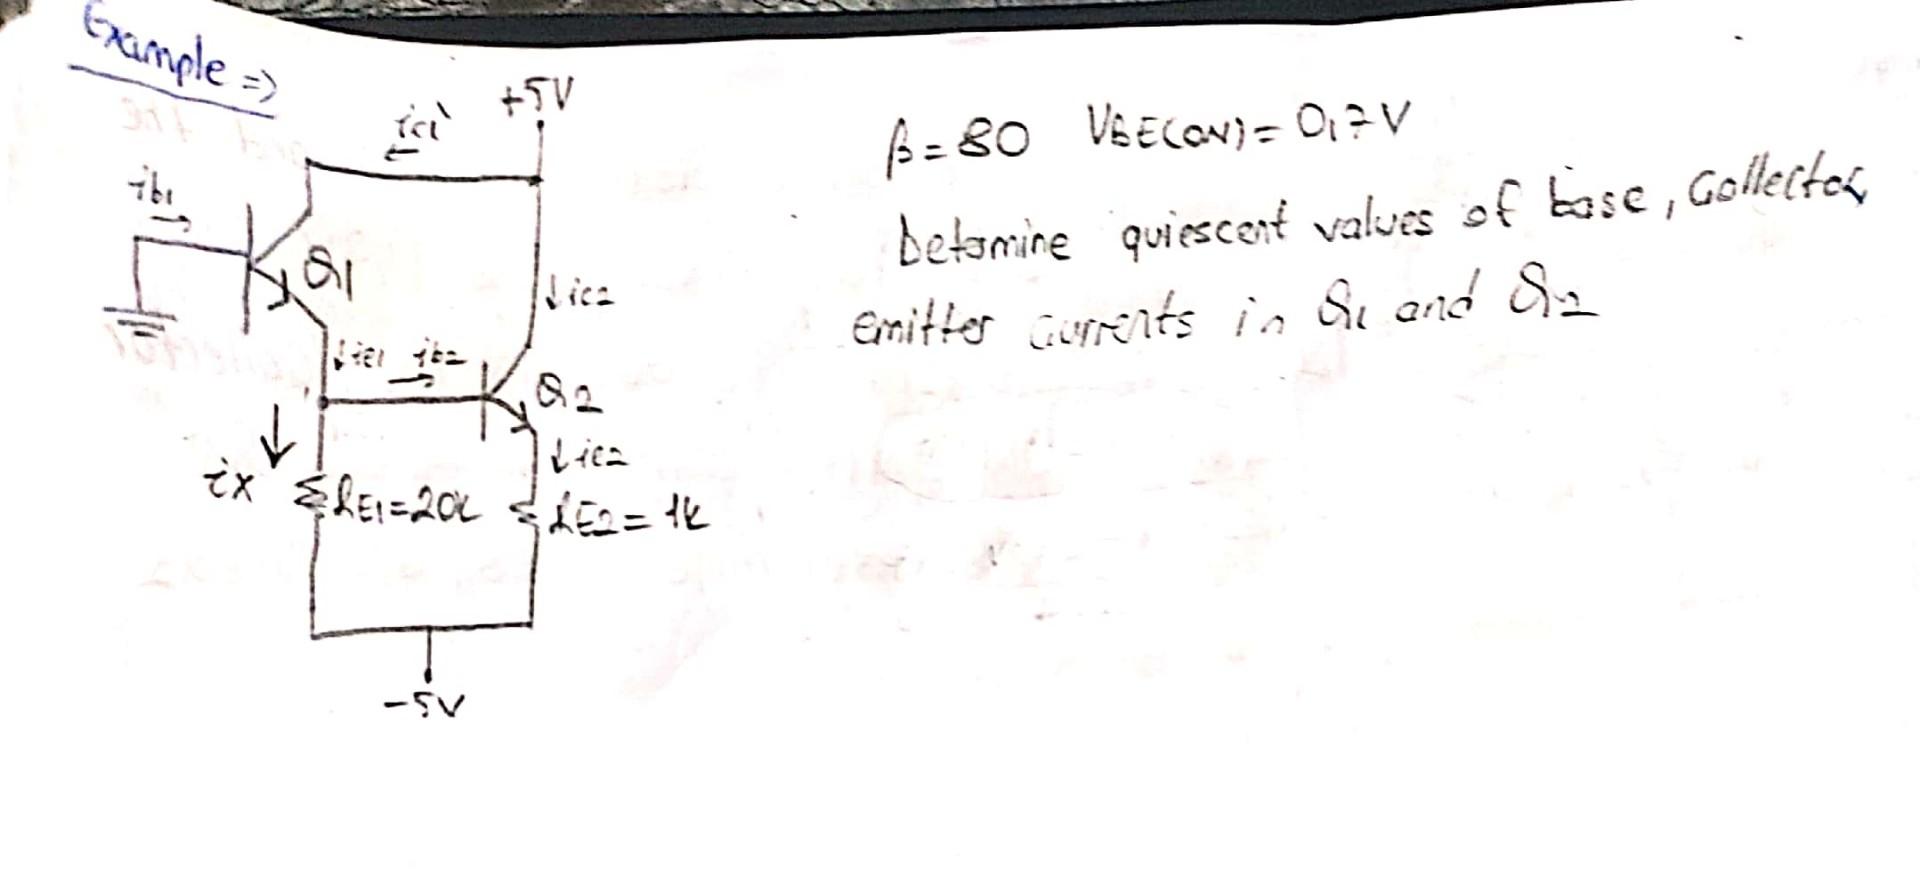 Example =>
+5V
ic1
ib1
Q1
↓ic2
↓ie1 ib2
Q2
↓ie2
ix
RE1=20k
RE2=1k
-5V
β=80 VBE(ON)=0,7V
Detemine quiescent values of base, collector,
emitter currents in Q1 and Q2